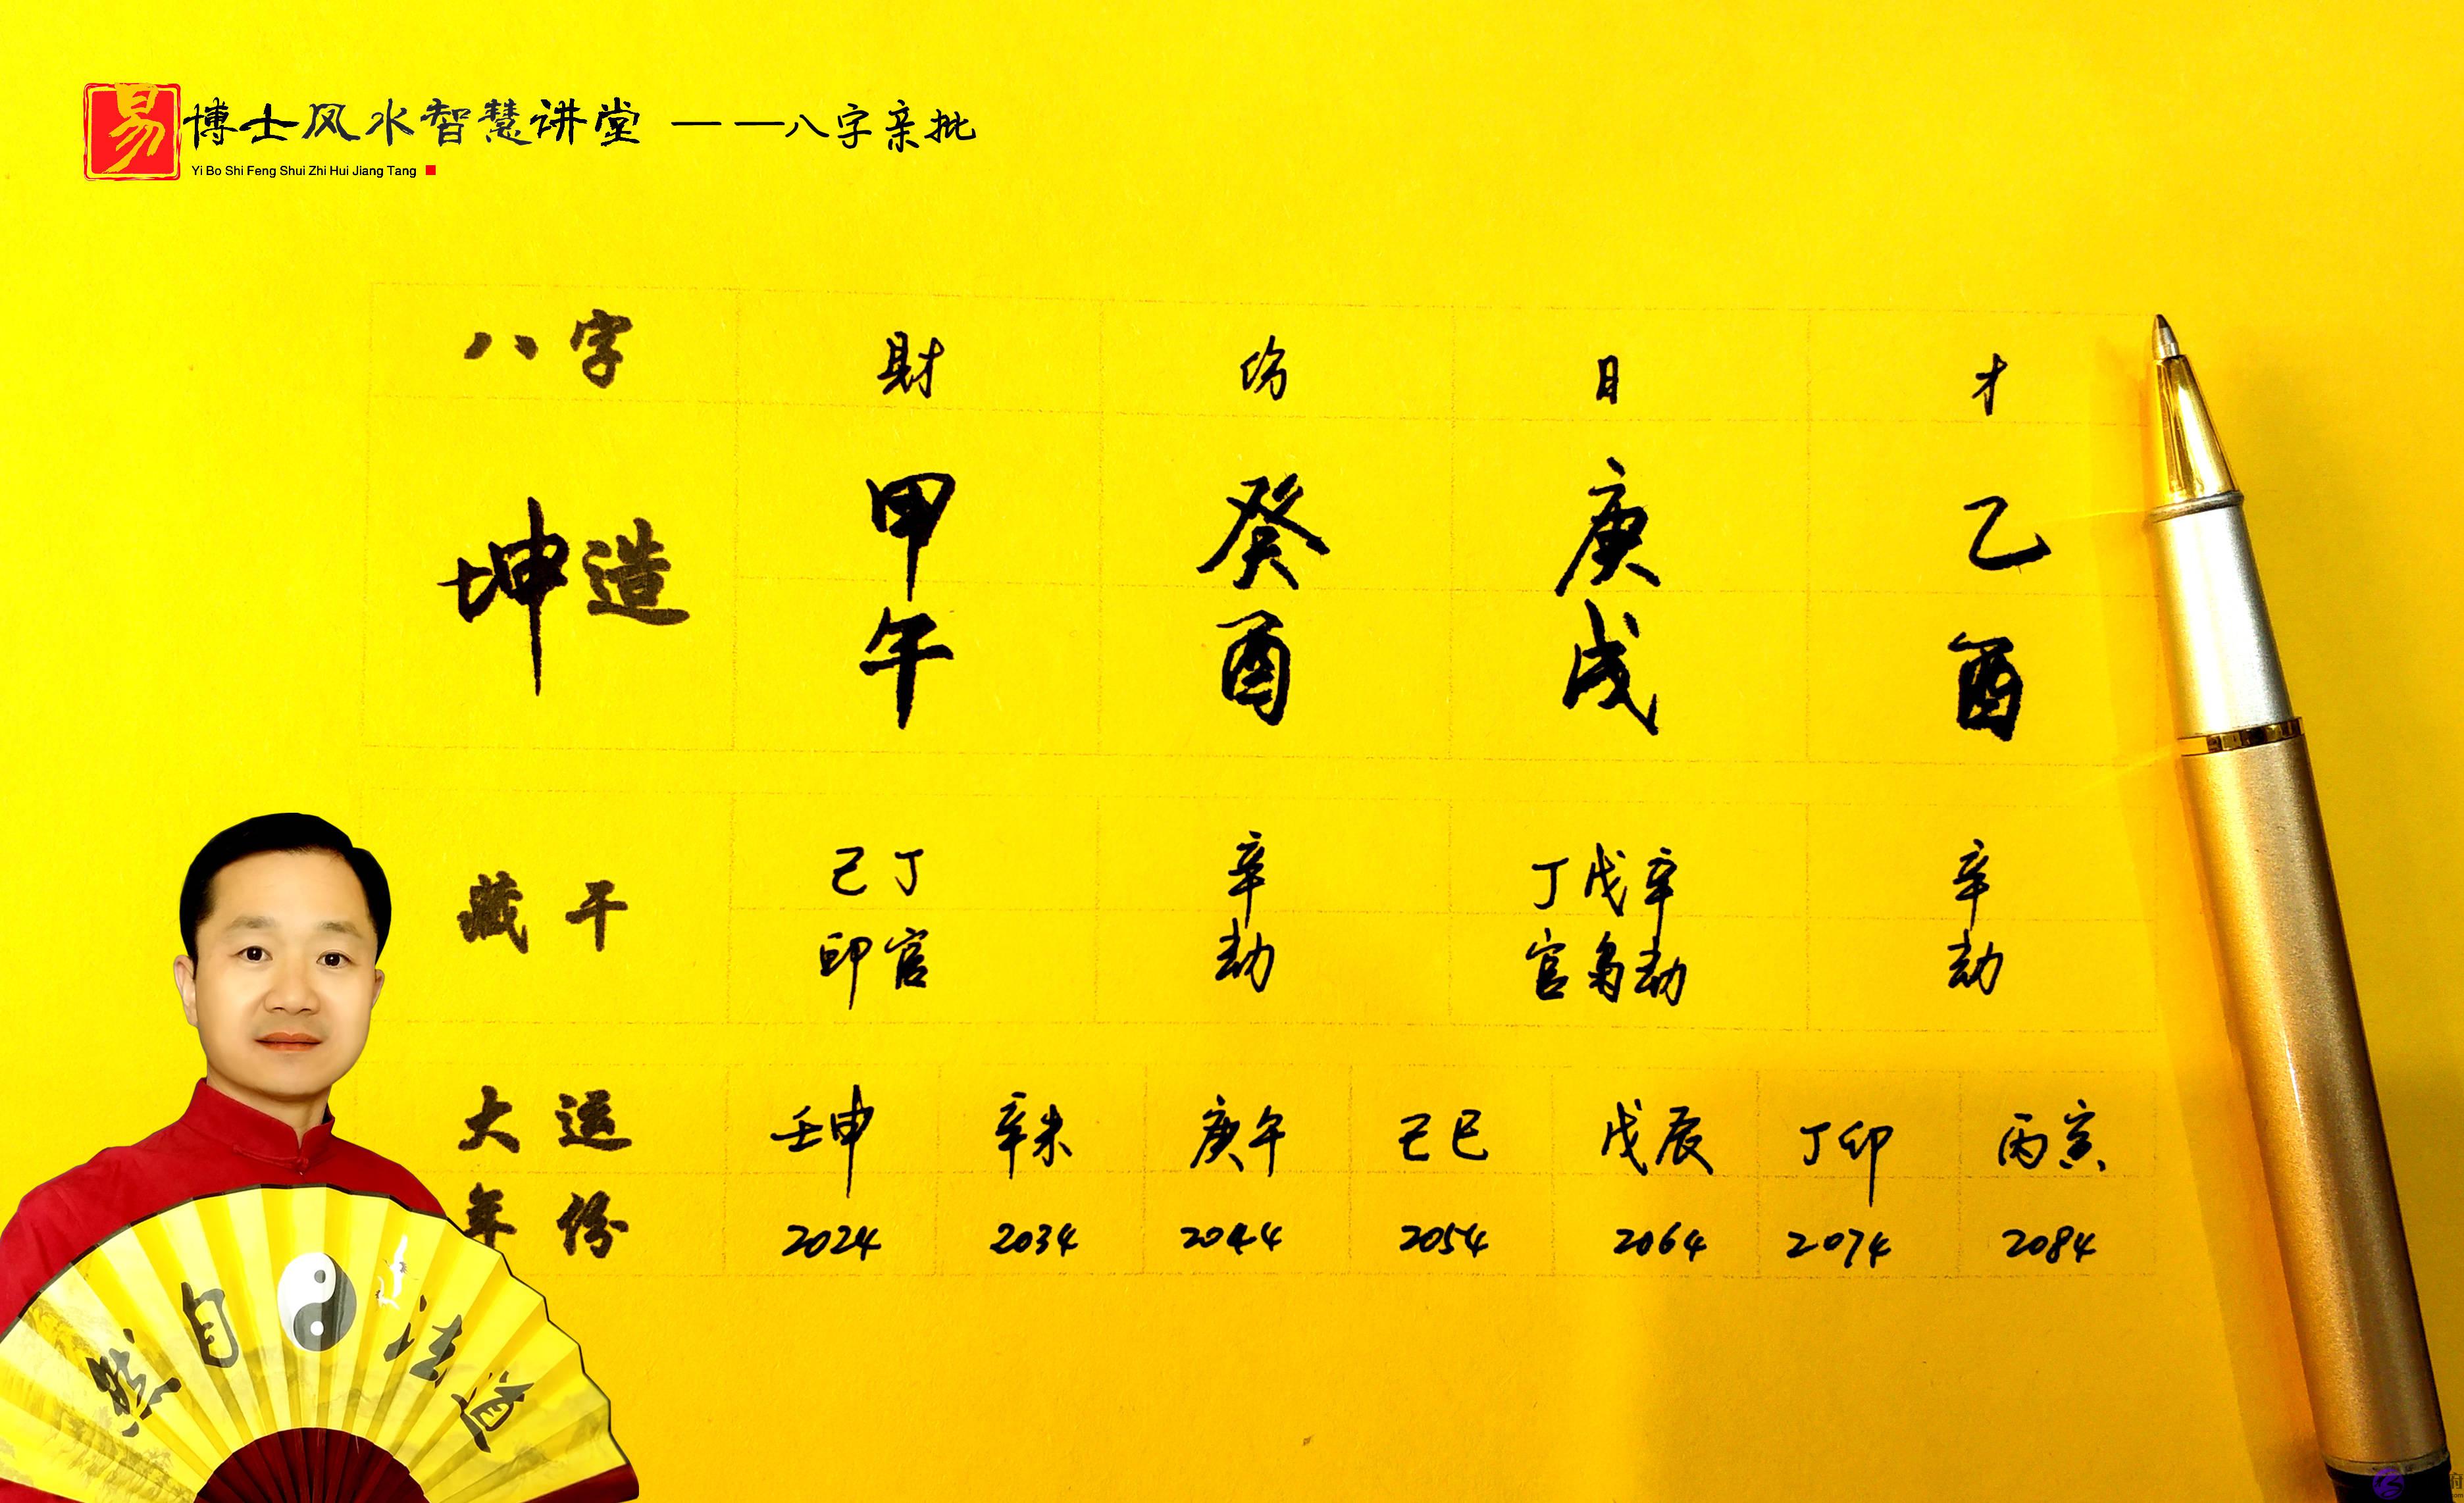 易博士风水智慧讲堂 ——八字亲批
Yi Bo Shi Feng Shui Zhi Hui Jiang Tang
八字 财 伤 日 才
坤造 甲 癸 庚 乙
午 酉 戌 酉
藏干 己丁 辛 丁戊辛 辛
印官 劫 官枭劫 劫
大运 壬申 辛未 庚午 己巳 戊辰 丁卯 丙寅
年份 2024 2034 2044 2054 2064 2074 2084
道法自然